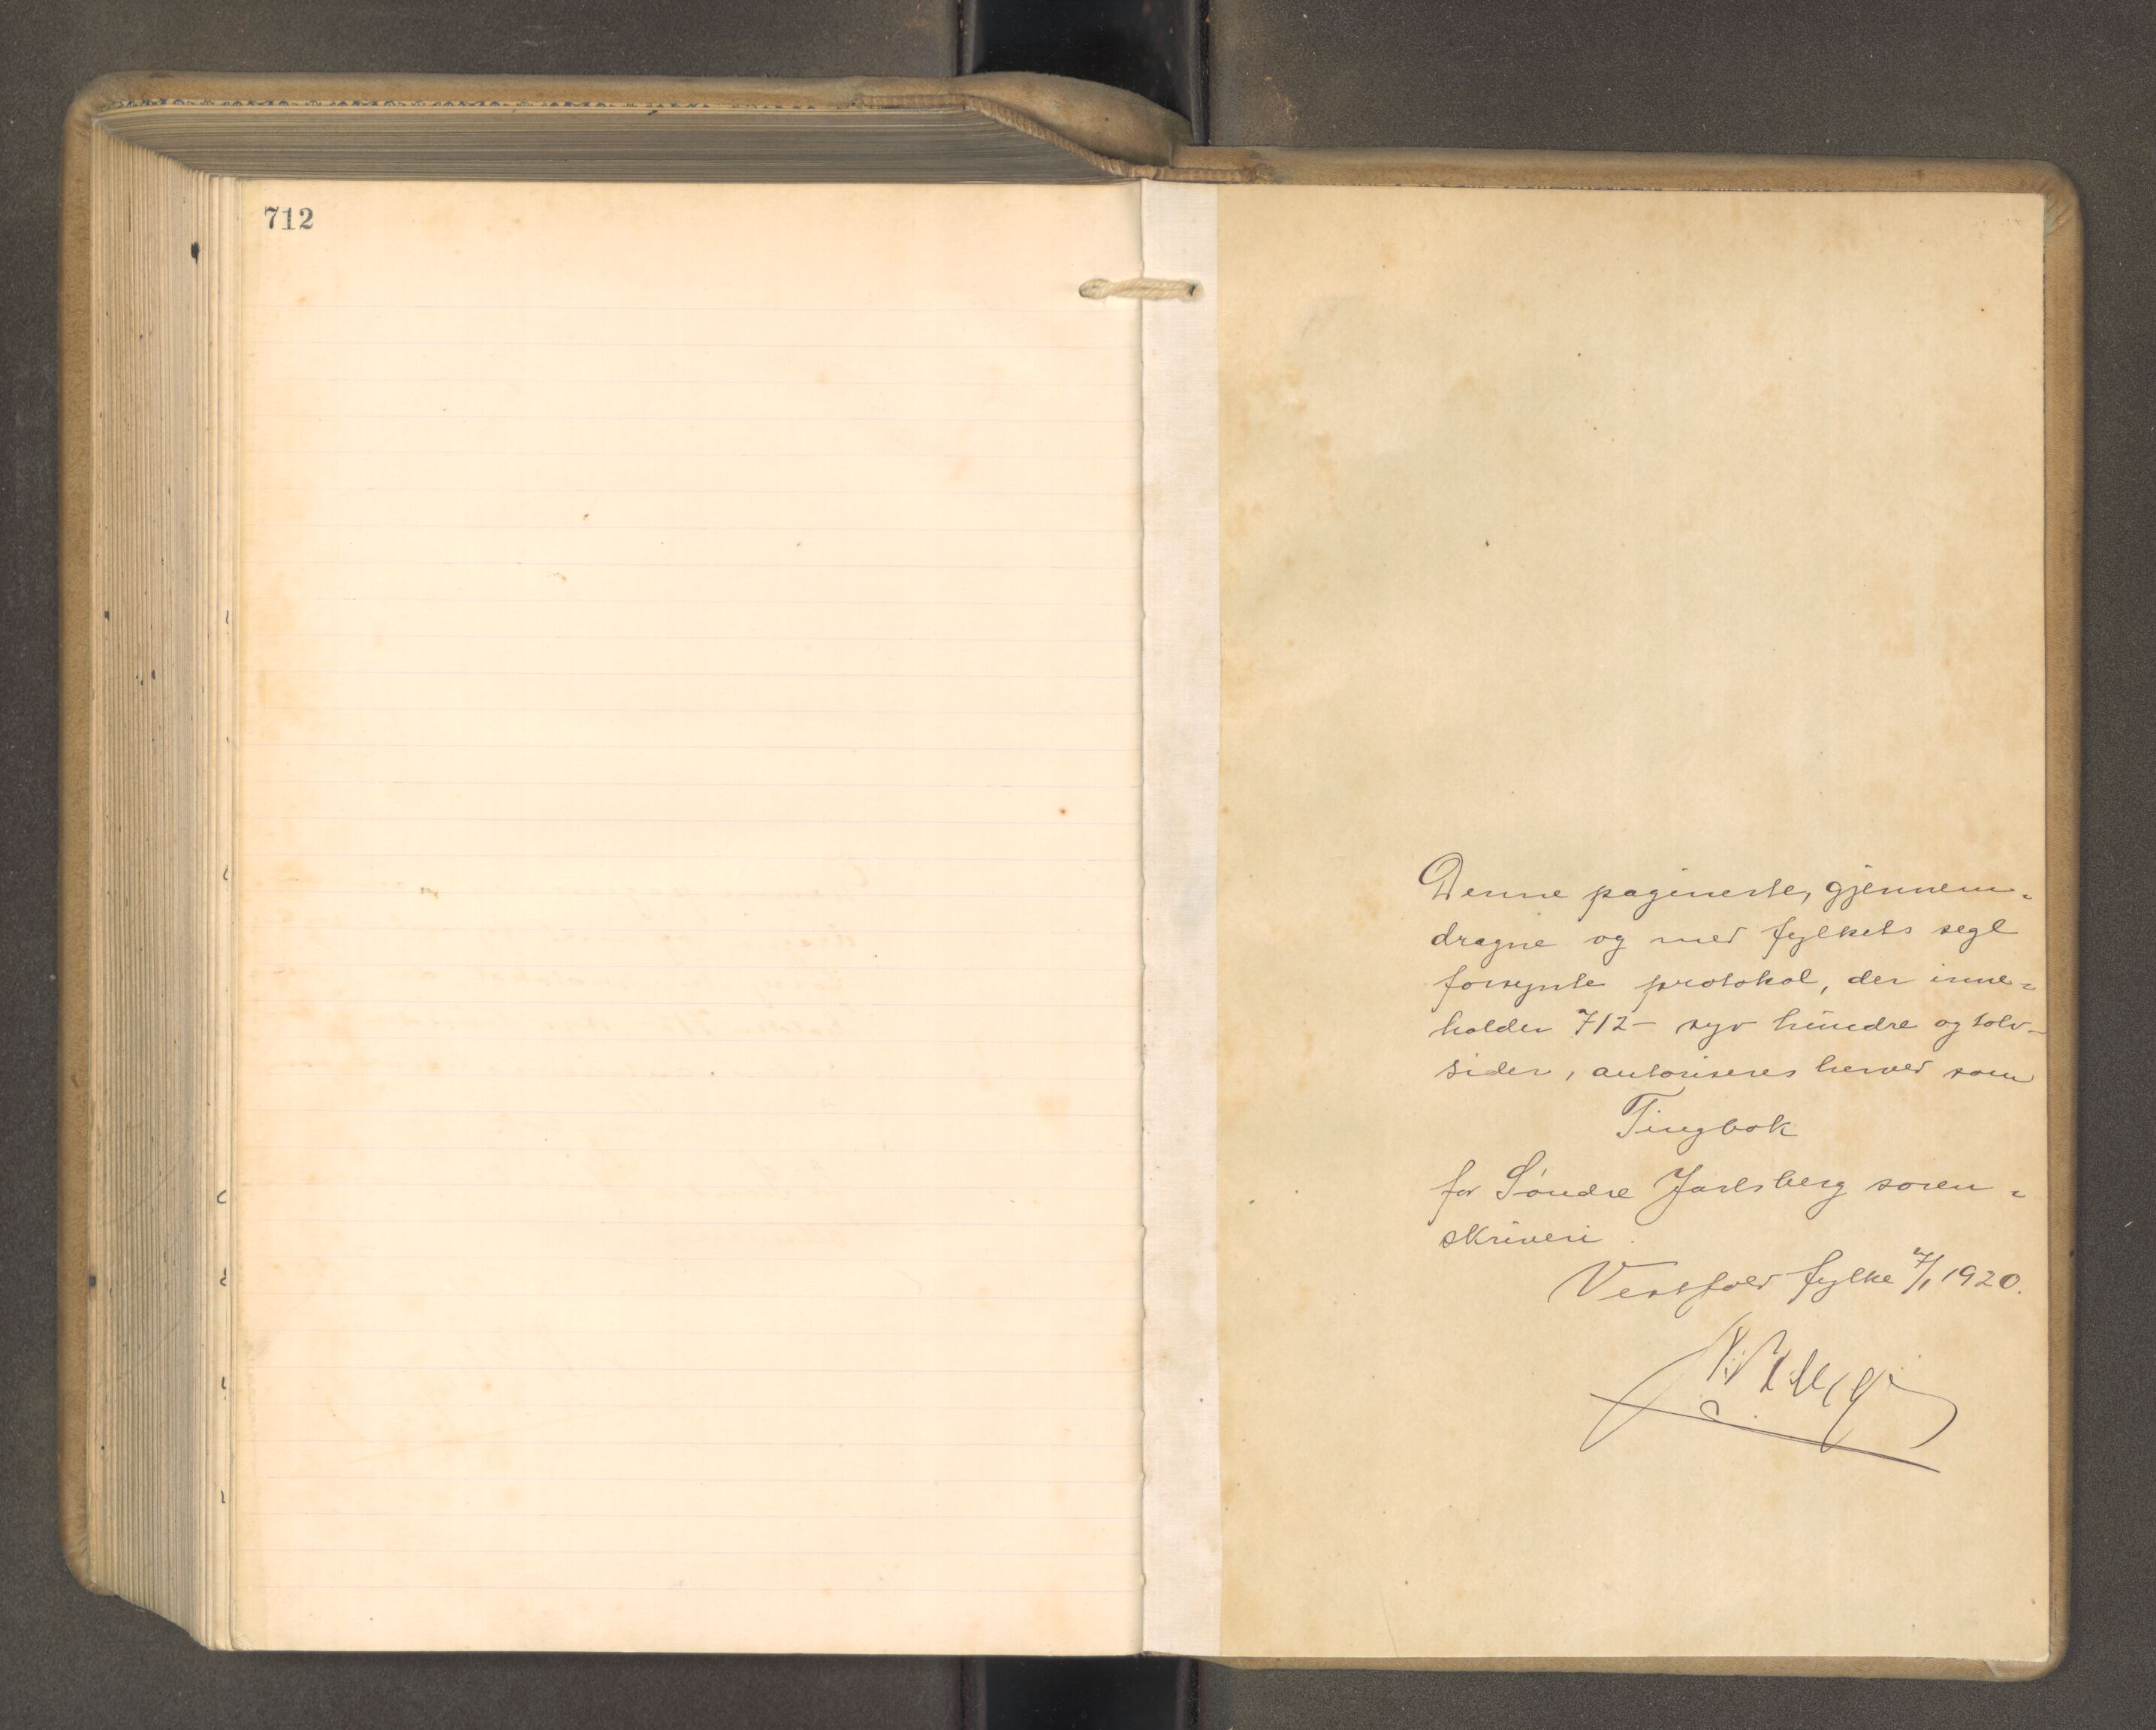 712
Denne paginerte, gjennem=
dragne og med fylkets segl
forsynte protokol, der inne=
holder 712 – syv hundre og tolv –
sider, autoriseres herved som
Tingbok
for Søndre Jarlsberg soren=
skriveri.
Vestfold fylke 7/1 1920.